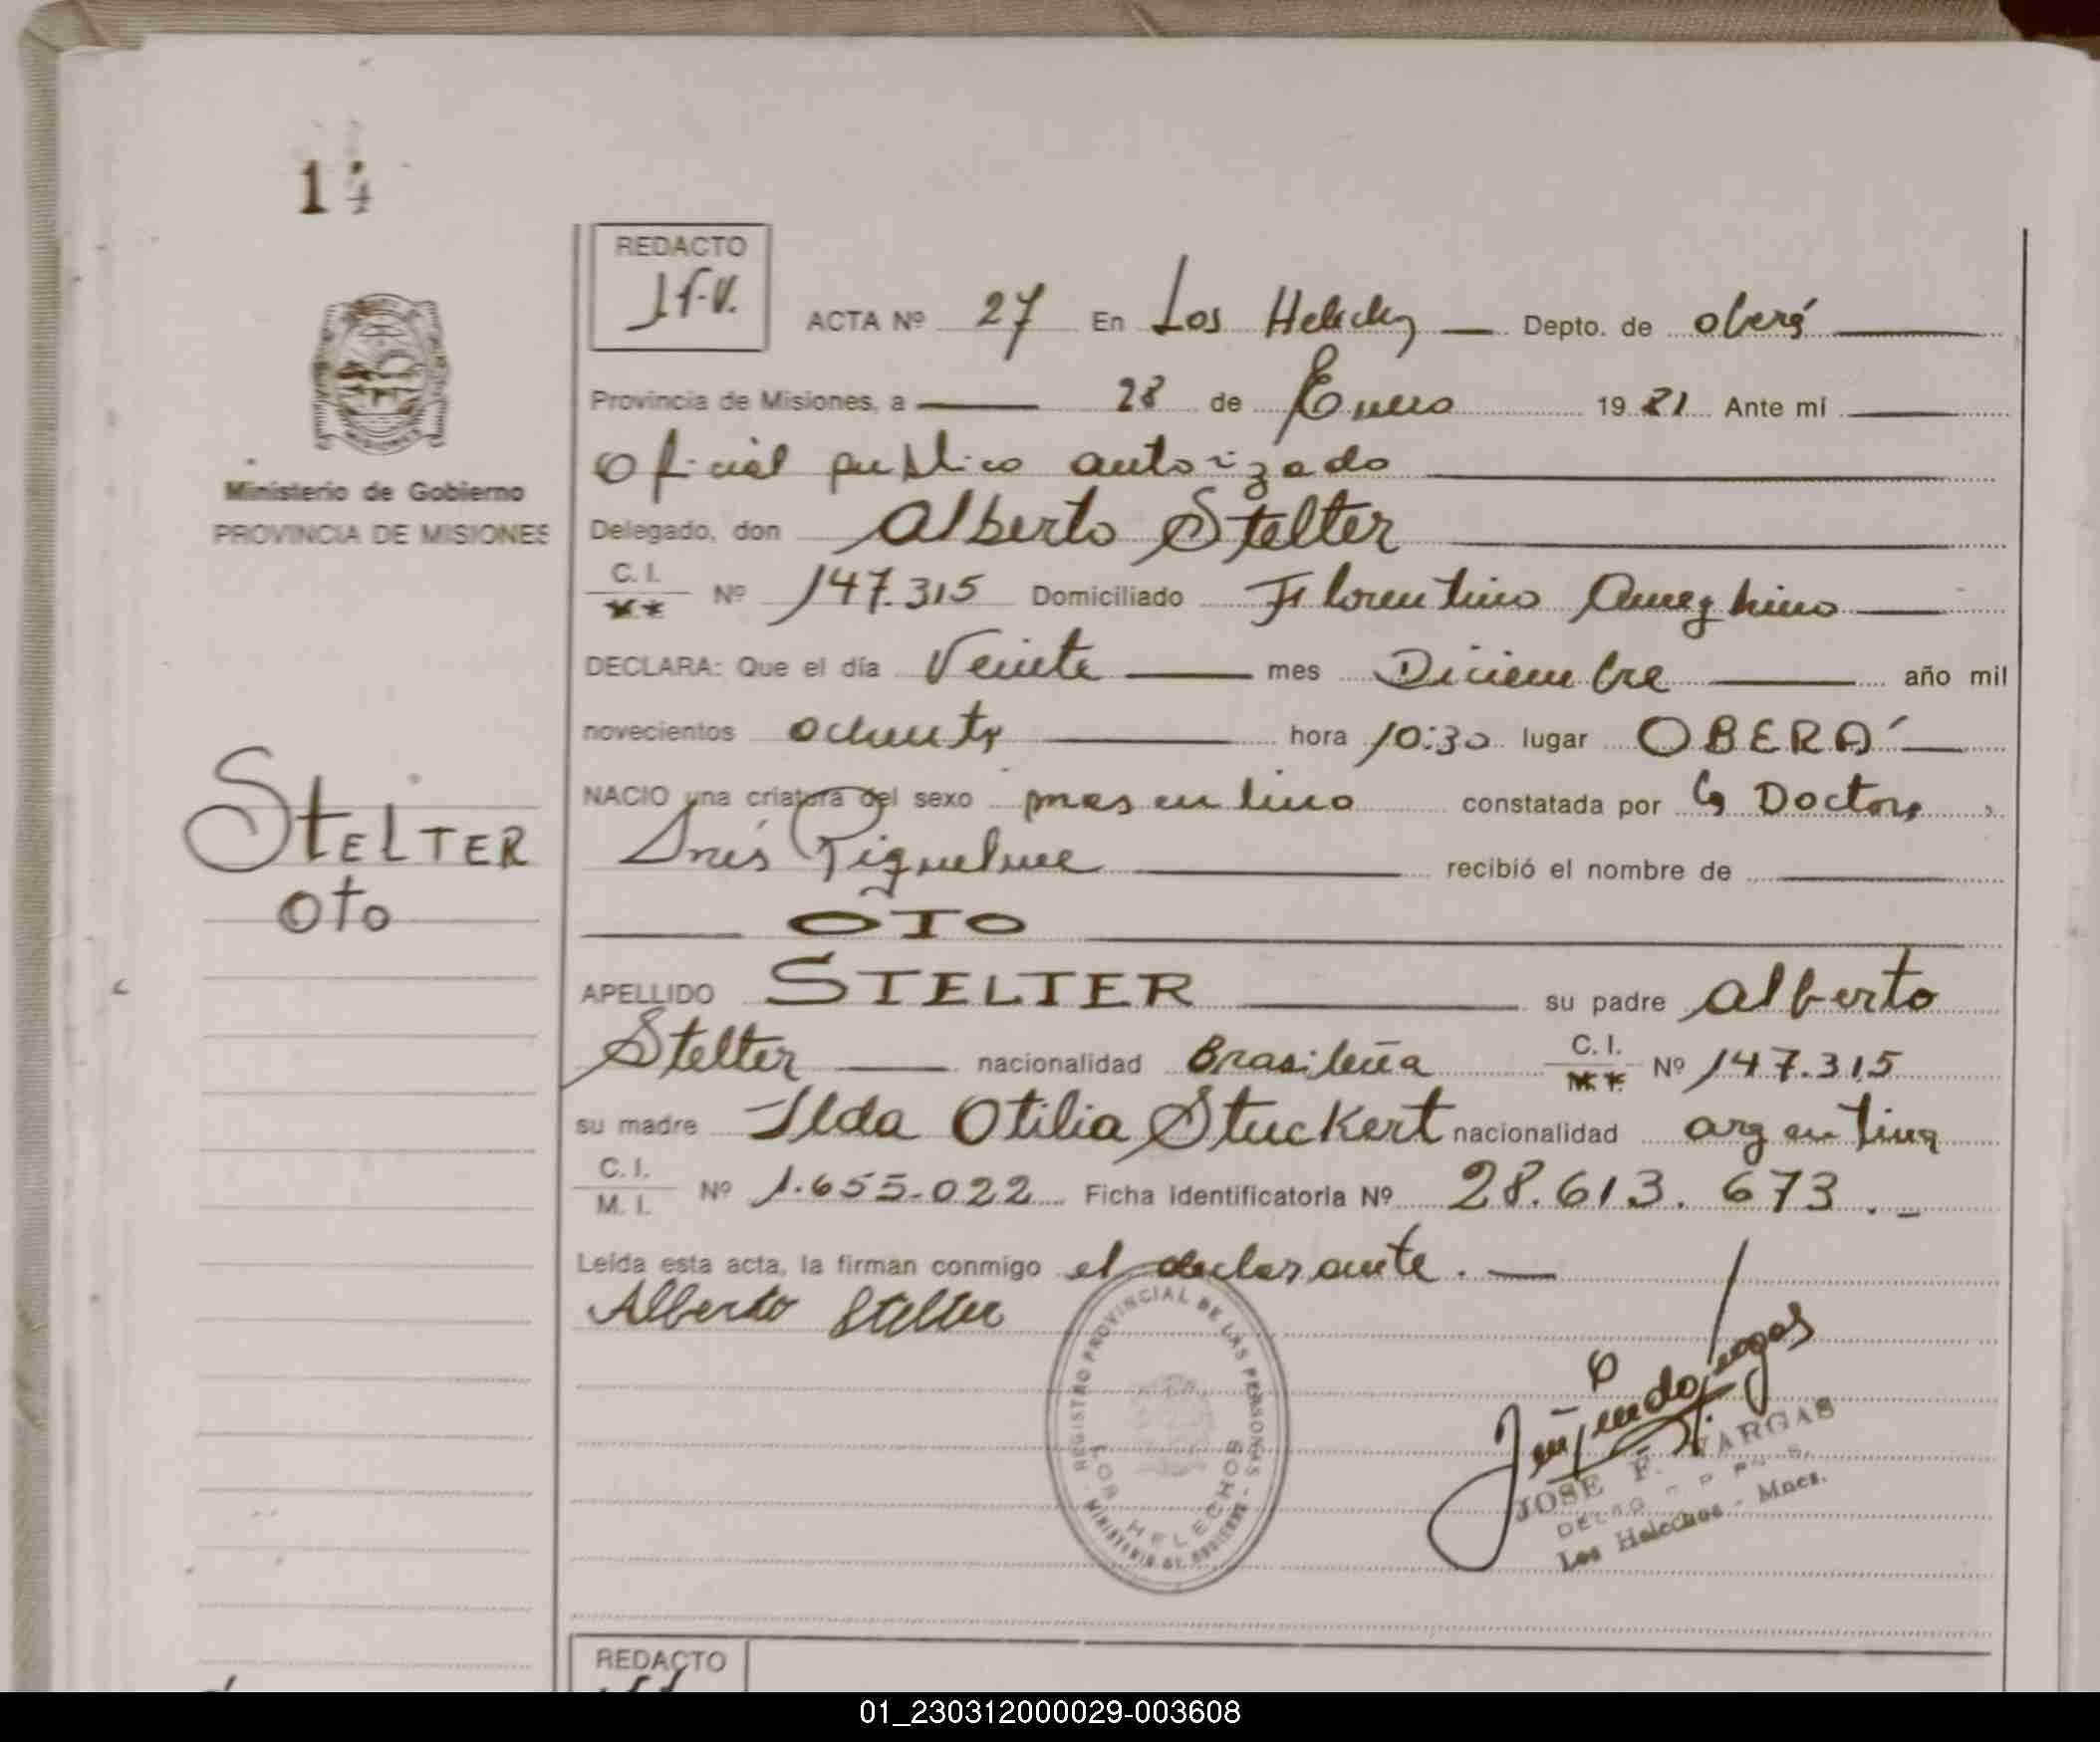 14
REDACTO
J.F.V.
ACTA Nº 27 En Los Helechos Depto. de oberá
Provincia de Misiones, a 28 de Enero 1981 Ante mí
Oficial publico autorizado
Ministerio de Gobierno
PROVINCIA DE MISIONES
Delegado, don Alberto Stelter
C. I. Nº 147.315 Domiciliado Florentino Ameghino
DECLARA: Que el día Veinte mes Diciembre año mil
novecientos ochenta hora 10:30 lugar OBERÁ
NACIO una criatura del sexo masculino constatada por la Doctora
Inés Riquelme recibió el nombre de
STELTER
OTO
OTO
APELLIDO STELTER su padre Alberto
Stelter nacionalidad Brasileña C. I. Nº 147.315
su madre Ilda Otilia Stuckert nacionalidad argentina
C. I. M. I. Nº 1.655.022 Ficha identificatoria Nº 28.613.673.-
Leída esta acta, la firman conmigo el declarante.
Alberto Stelter
REGISTRO PROVINCIAL DE LAS PERSONAS - MINISTERIO DE GOBIERNO -
LOS HELECHOS
JOSE F. VARGAS
Los Helechos - Mnes.
REDACTO
01_230312000029-003608